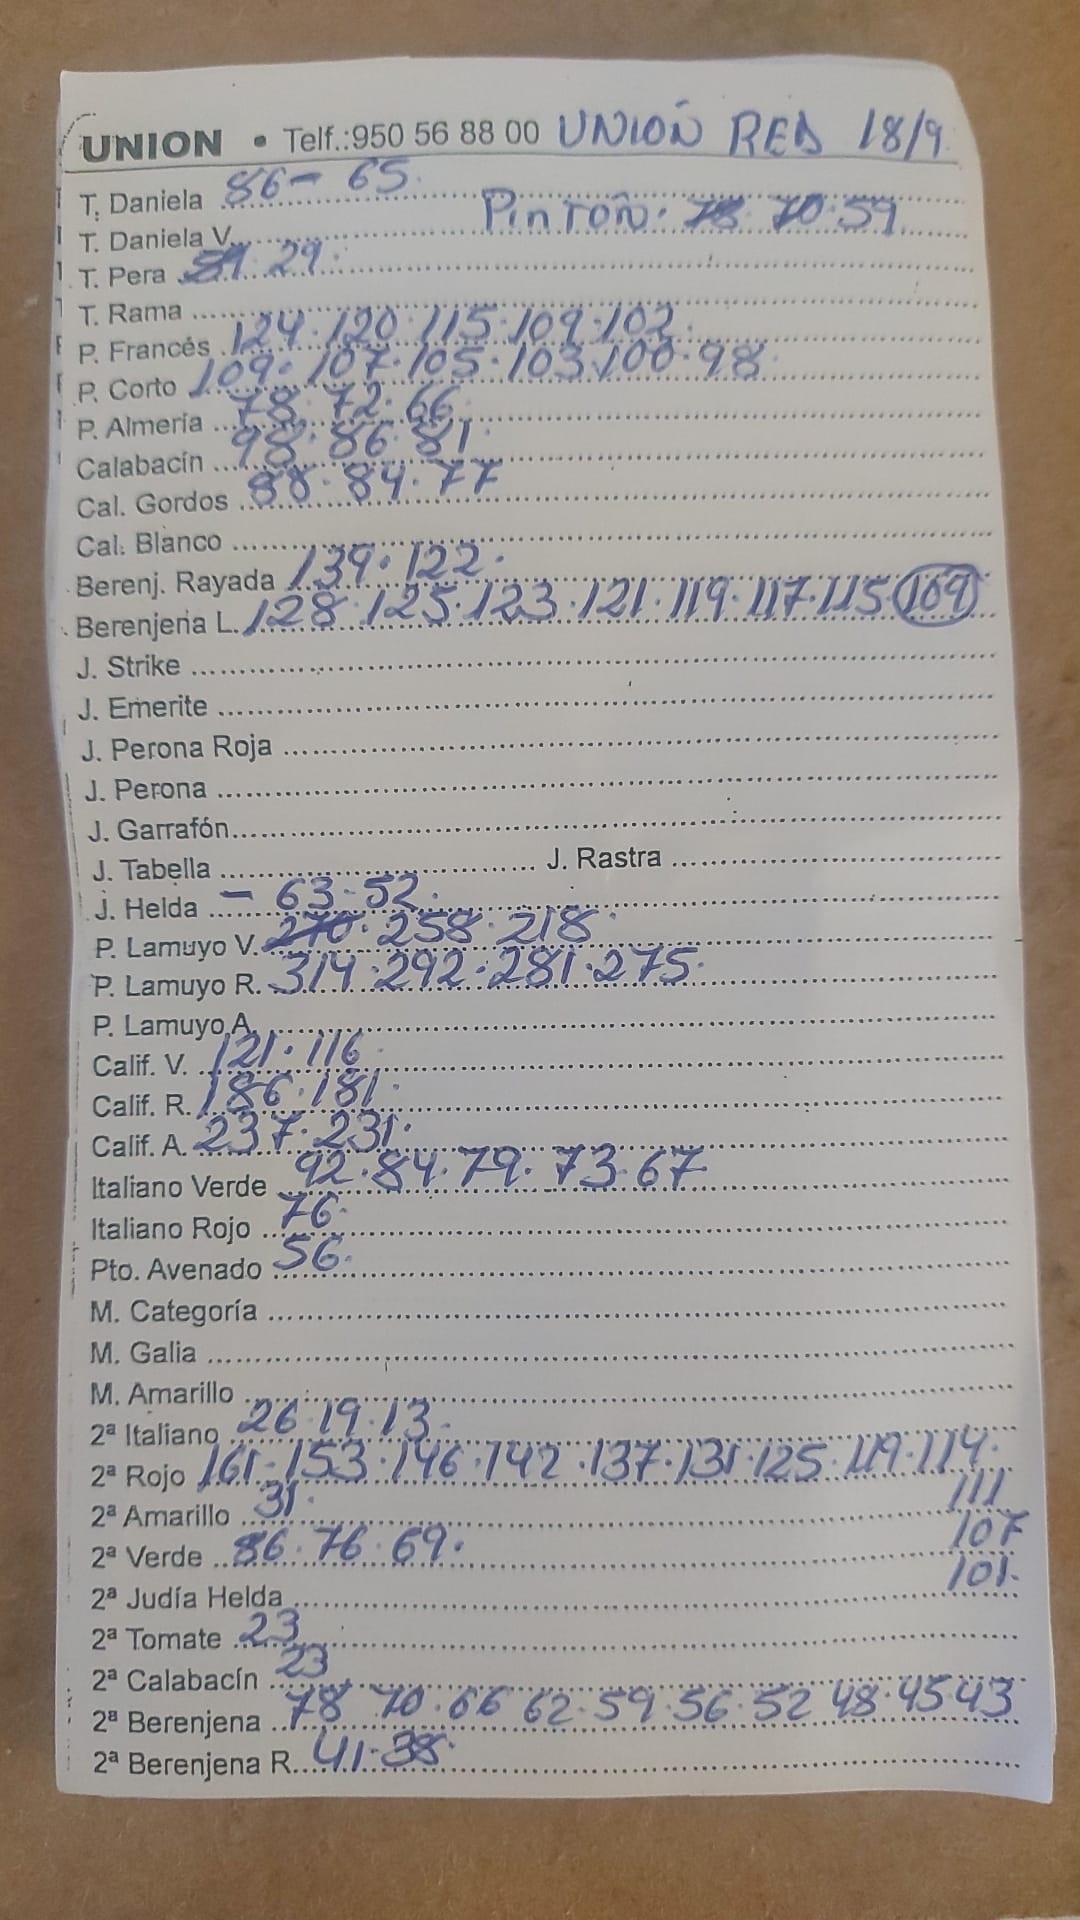 UNION • Telf.:950 56 88 00 UNION RED 18/9
T. Daniela 86- 65.
T. Daniela V. Pinton. 78 70.59
T. Pera 29.
T. Rama
P. Francés 124.120.115.109.102.
P. Corto 109.107.105.103.100.98
P. Almería 78.72.66
Calabacín 98.86.81.
Cal. Gordos 88.84.77
Cal. Blanco
Berenj. Rayada 139.122.
Berenjena L. 128.125.123.121.119.117.115.109
J. Strike
J. Emerite
J. Perona Roja
J. Perona
J. Garrafón
J. Tabella J. Rastra
J. Helda - 63-52.
P. Lamuyo V. 270.258.218.
P. Lamuyo R. 314.292.281.275.
P. Lamuyo A.
Calif. V. 121.116.
Calif. R. 186.181.
Calif. A. 237.231.
Italiano Verde 92.84.79.73.67
Italiano Rojo 76.
Pto. Avenado 56.
M. Categoría
M. Galia
M. Amarillo
2ª Italiano 26.19.13.
2ª Rojo 161.153.146.142.137.131.125.119.114.
2ª Amarillo 31. 111
2ª Verde 86.76.69. 107
2ª Judía Helda 101.
2ª Tomate 23
2ª Calabacín 23
2ª Berenjena 78 70.66 62.59.56.52 48.45 43
2ª Berenjena R. 41-38.